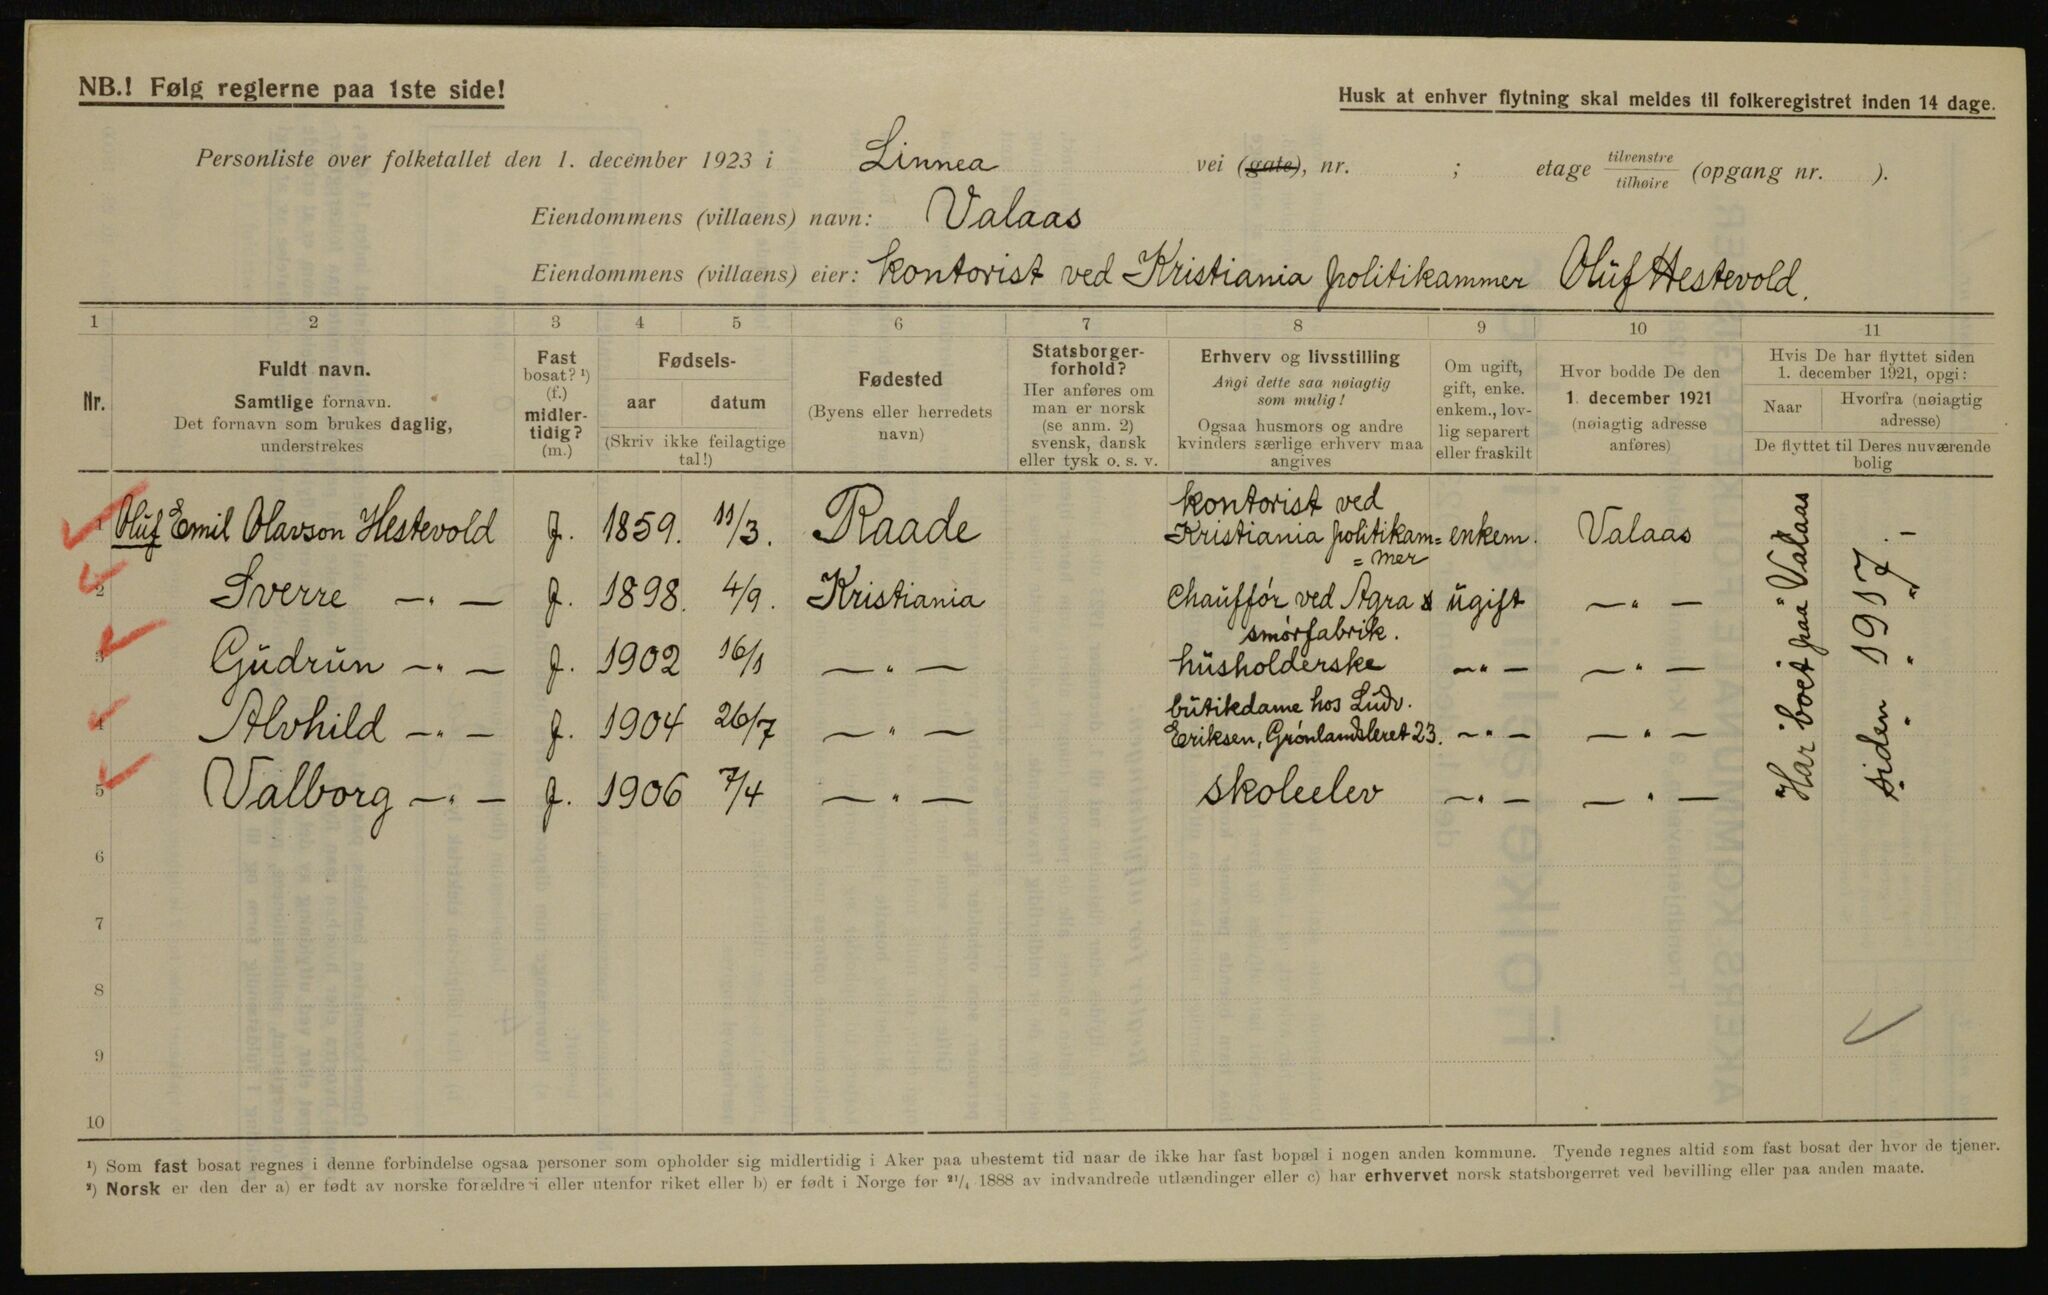 NB.! Følg reglerne paa 1ste side!
Husk at enhver flytning skal meldes til folkeregistret inden 14 dage.
Personliste over folketallet den 1. december 1923 i Linnea vei (gate), nr. ; etage tilvenstre tilhøire (opgang nr. ).
Eiendommens (villaens) navn: Valaas
Eiendommens (villaens) eier: kontorist ved Kristiania politikammer Oluf Hestevold.
1 2 3 4 5 6 7 8 9 10 11
Nr.
Fuldt navn.
Samtlige fornavn.
Det fornavn som brukes daglig,
understrekes
Fast
bosat? ¹)
(f.)
midler-
tidig?
(m.)
Fødsels-
aar datum
(Skriv ikke feilagtige
tal!)
Fødested
(Byens eller herredets
navn)
Statsborger-
forhold?
Her anføres om
man er norsk
(se anm. 2)
svensk, dansk
eller tysk o. s. v.
Erhverv og livsstilling
Angi dette saa nøiagtig
som mulig!
Ogsaa husmors og andre
kvinders særlige erhverv maa
angives
Om ugift,
gift, enke.
enkem., lov-
lig separert
eller fraskilt
Hvor bodde De den
1. december 1921
(nøiagtig adresse
anføres)
Hvis De har flyttet siden
1. december 1921, opgi:
Naar
Hvorfra (nøiagtig
adresse)
De flyttet til Deres nuværende
bolig
1 Oluf Emil Olavson Hestevold f. 1859. 11/3. Raade kontorist ved
Kristiania politikam= enkem. Valaas
= mer
2 Sverre —"— f. 1898. 4/9. Kristiania Chauffør ved Agra ugift —"—
smørfabrik.
3 Gudrun —"— f. 1902 16/1 —"— husholderske —"— —"—
4 Alvhild —"— f. 1904 26/7 —"— butikdame hos Ludv.
Eriksen, Grønlandsleret 23. —"— —"—
5 Valborg —"— f. 1906 7/4 —"— skoleelev —"— —"—
Har boet paa "Valaas"
siden 1917. -
" " "
6
7
8
9
10
¹) Som fast bosat regnes i denne forbindelse ogsaa personer som opholder sig midlertidig i Aker paa ubestemt tid naar de ikke har fast bopæl i nogen anden kommune. Tyende regnes altid som fast bosat der hvor de tjener.
²) Norsk er den der a) er født av norske forældre i eller utenfor riket eller b) er født i Norge før ²¹/₄ 1888 av indvandrede utlændinger eller c) har erhvervet norsk statsborgerret ved bevilling eller paa anden maate.